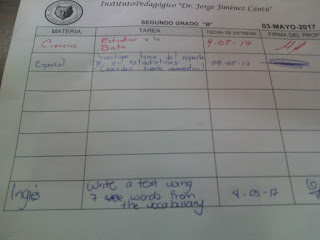 InstitutoPedagógico "Dr. Jorge Jiménez Cantú"
SEGUNDO GRADO "B" 03-MAYO-2017
MATERIA TAREA FECHA DE ENTREGA FIRMA DEL PROF
Ciencias Estudiar y la 4-05-17
Bata
Español Investigar tema del reporte
09-05-17
Inglés Write a text using 4-05-17
7 words from
the vocabulary